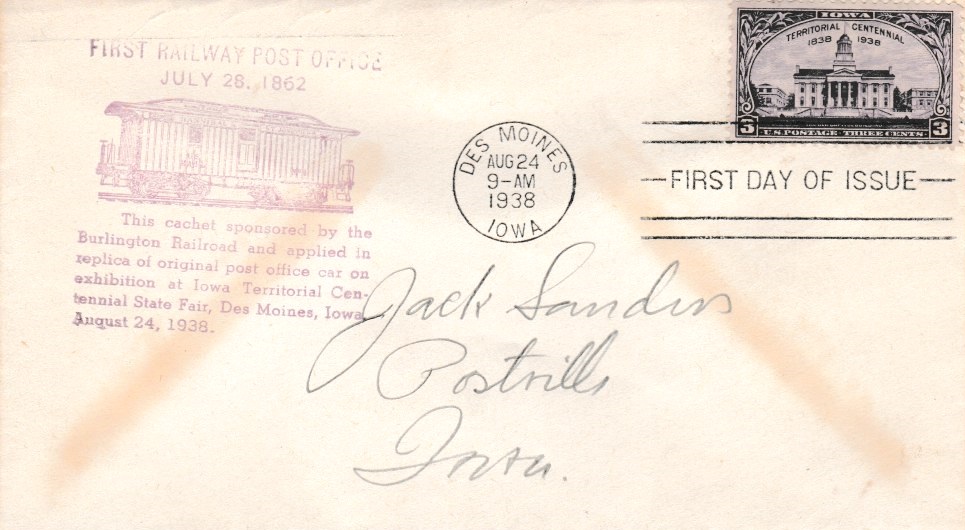 FIRST RAILWAY POST OFFICE
JULY 28, 1862
This cachet sponsored by the
Burlington Railroad and applied in
replica of original post office car on
exhibition at Iowa Territorial Cen-
tennial State Fair, Des Moines, Iowa,
August 24, 1938.
DES MOINES
AUG 24
9-AM
1938
IOWA
IOWA
TERRITORIAL CENTENNIAL
1838 1938
3 U.S. POSTAGE THREE CENTS 3
FIRST DAY OF ISSUE
Jack Sanders
Postville
Iowa.